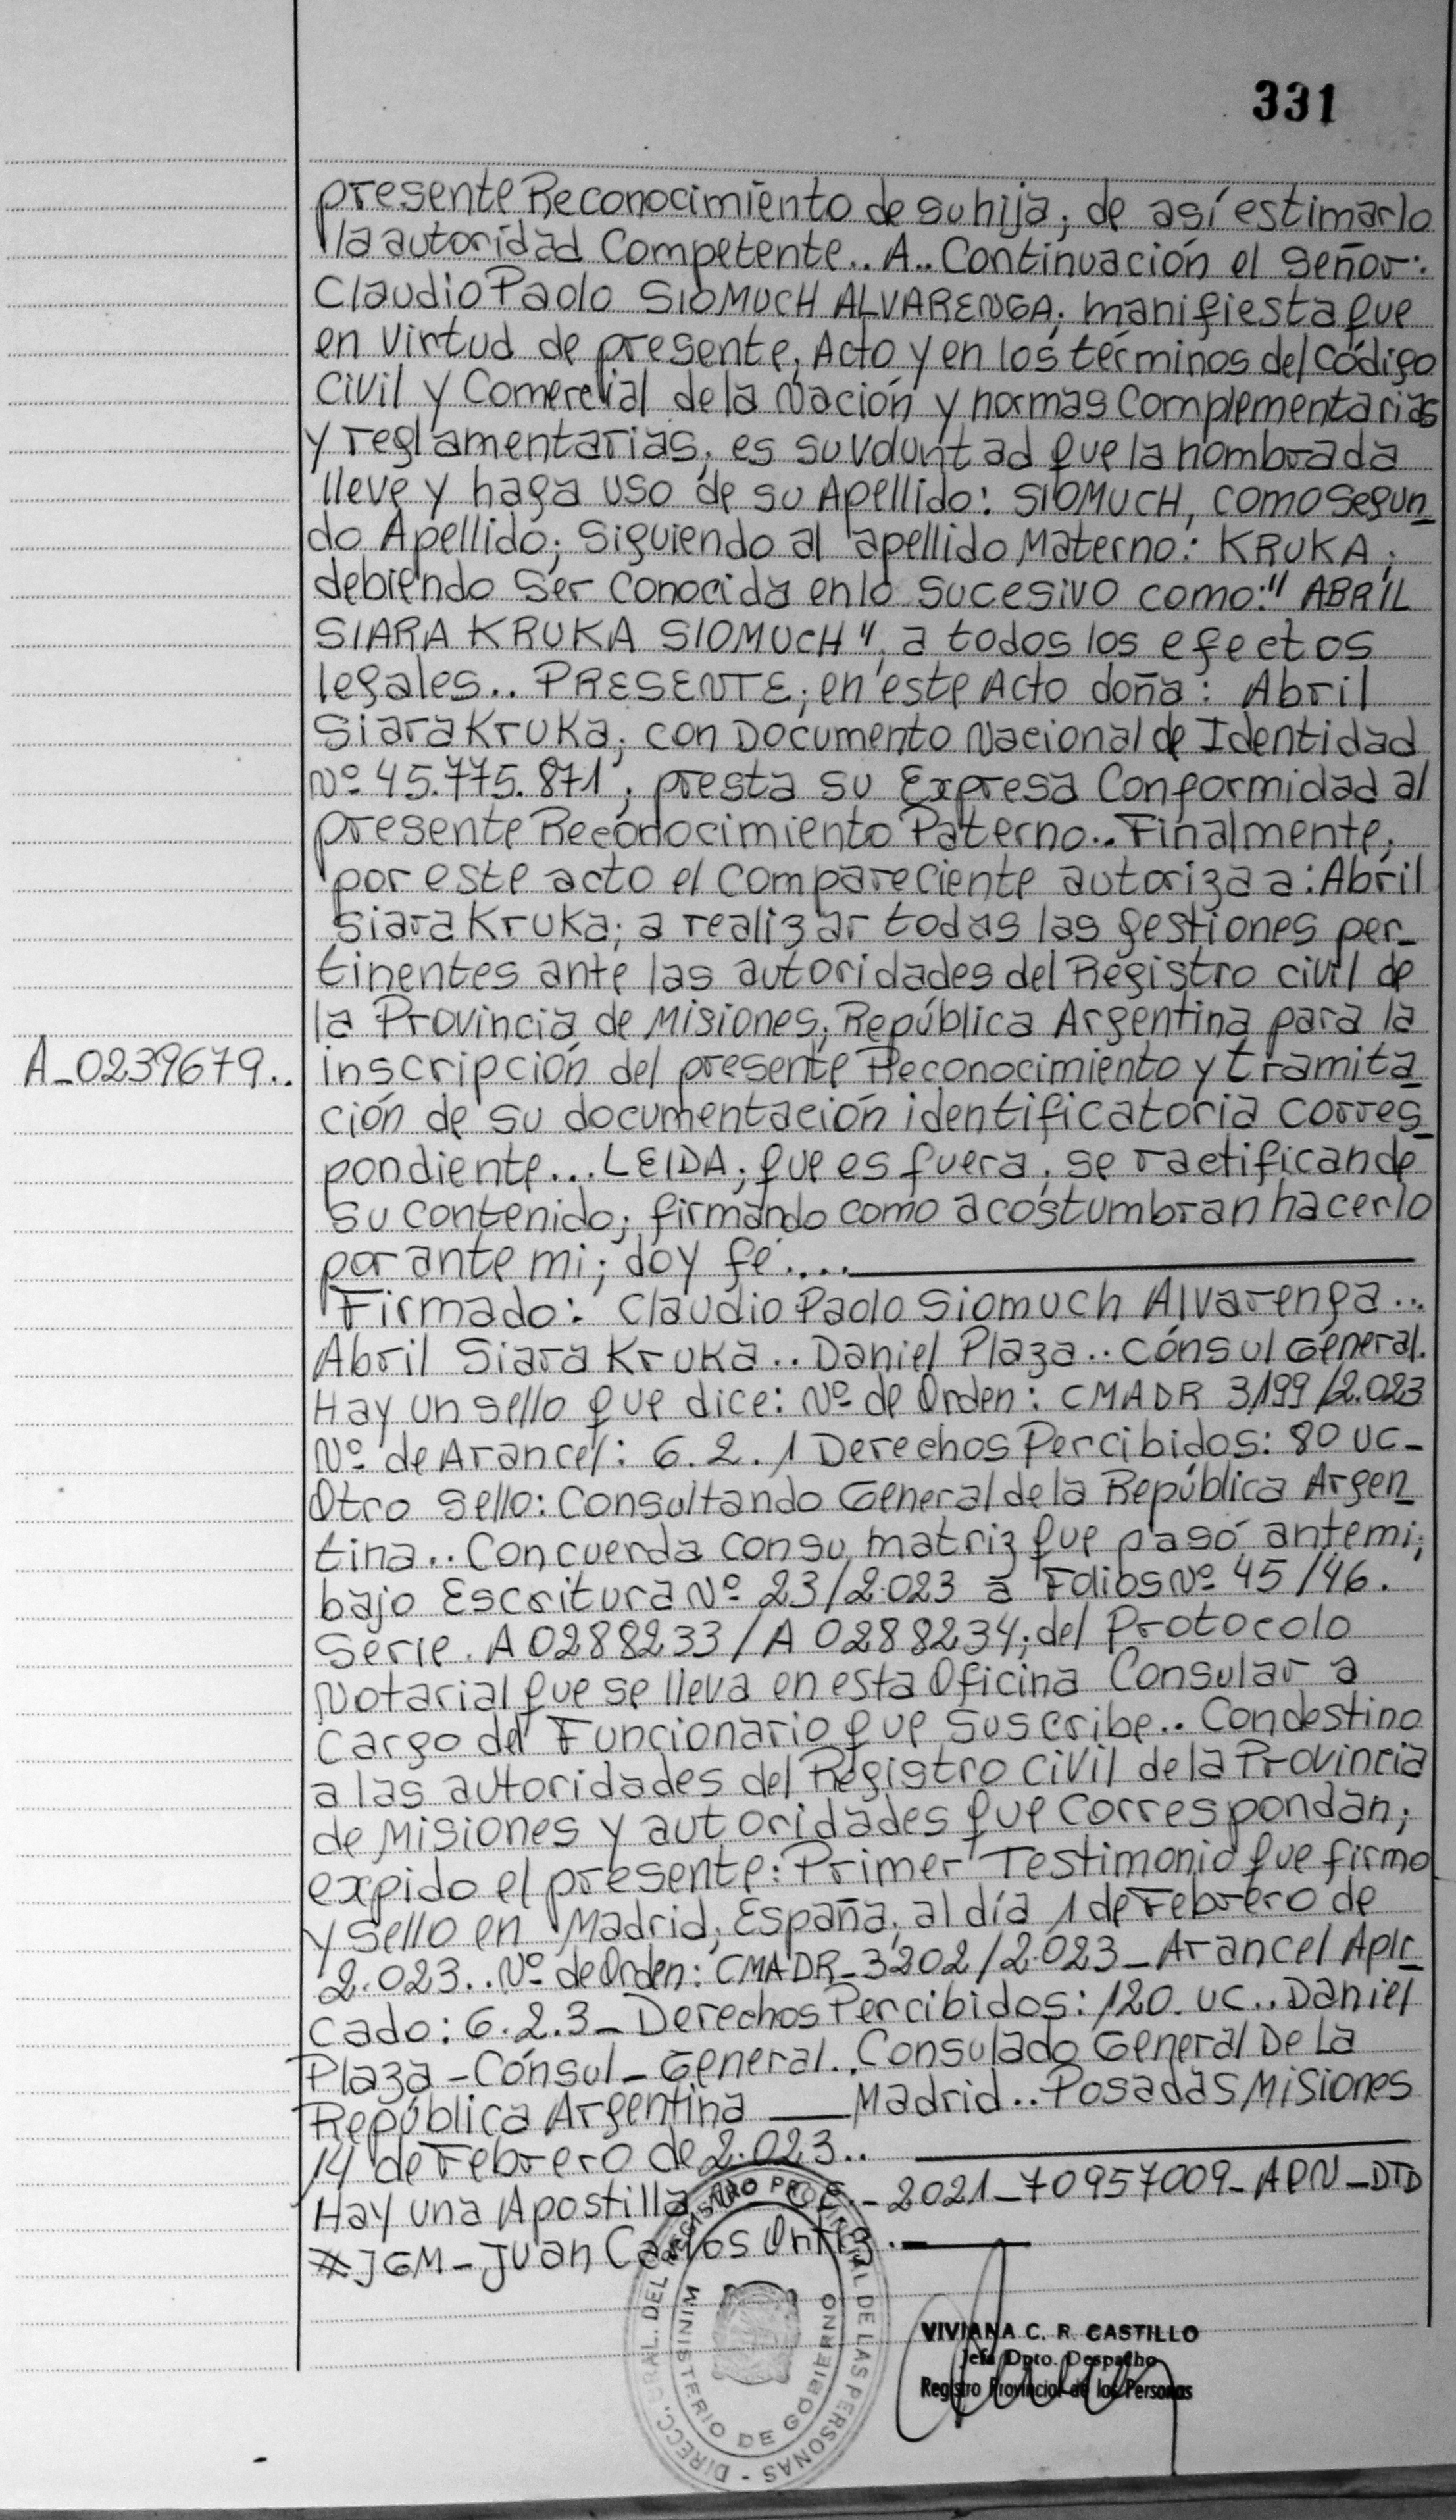 331
presente Reconocimiento de su hija; de así estimarlo
la autoridad Competente.. A.. Continuación el señor:
Claudio Paolo SIOMUCH ALVARENGA; manifiesta que
en virtud de presente, Acto y en los términos del Código
Civil y Comercial de la Nación y normas Complementarias
y reglamentarias; es su voluntad que la nombrada
lleve y haga uso de su Apellido: SIOMUCH, como segun_
do Apellido; siguiendo al apellido Materno: KRUKA;
debiendo ser conocida en lo sucesivo como: "ABRIL
SIARA KRUKA SIOMUCH", a todos los efectos
legales.. PRESENTE; en este Acto doña: Abril
Siara Kruka; con Documento Nacional de Identidad
Nº 45.775.871; presta su Expresa Conformidad al
presente Recodocimiento Paterno.. Finalmente;
por este acto el compareciente autoriza a: Abril
Siara Kruka; a realizar todas las gestiones per_
tinentes ante las autoridades del Registro civil de
la Provincia de Misiones; República Argentina para la
A_0239679..
inscripción del presente Reconocimiento y tramita_
ción de su documentación identificatoria corres_
pondiente... LEIDA; que es fuera; se ractifican de
su contenido; firmando como acostumbran hacerlo
por ante mi; doy fé....
Firmado: Claudio Paolo Siomuch Alvarenga...
Abril Siara Kruka.. Daniel Plaza.. Cónsul General.
Hay un sello que dice: Nº de Orden: CMADR 3199/2.023
Nº de Arancel: 6.2.1 Derechos Percibidos: 80 UC_
Otro sello: Consultando General de la República Argen_
tina.. Concuerda con su matriz que pasó ante mi;
bajo Escritura Nº 23/2.023 a Folios Nº 45/46.
Serie. A 0288233/A 0288234; del Protocolo
Notarial que se lleva en esta Oficina Consular a
Cargo del Funcionario que suscribe.. Con destino
a las autoridades del Registro Civil de la Provincia
de Misiones y autoridades que correspondan;
expido el presente: Primer Testimonio que firmo
y sello en Madrid; España; al día 1 de Febrero de
2.023.. Nº de Orden: CMADR_3202/2.023_ Arancel Apli_
cado: 6.2.3_ Derechos Percibidos: 120. UC.. Daniel
Plaza - Cónsul _ General.. Consulado General De La
República Argentina ___ Madrid.. Posadas Misiones
14 de Febrero de 2.023..
Hay una Apostilla _ 2021_70957009_APN_DTD
#JGM_ Juan Carlos
DIRECC. GRAL. DEL REGISTRO PROVINCIAL DE LAS PERSONAS -
MINISTERIO DE GOBIERNO
VIVIANA C. R. CASTILLO
Jefa Dpto. Despacho
Registro Provincial de las Personas